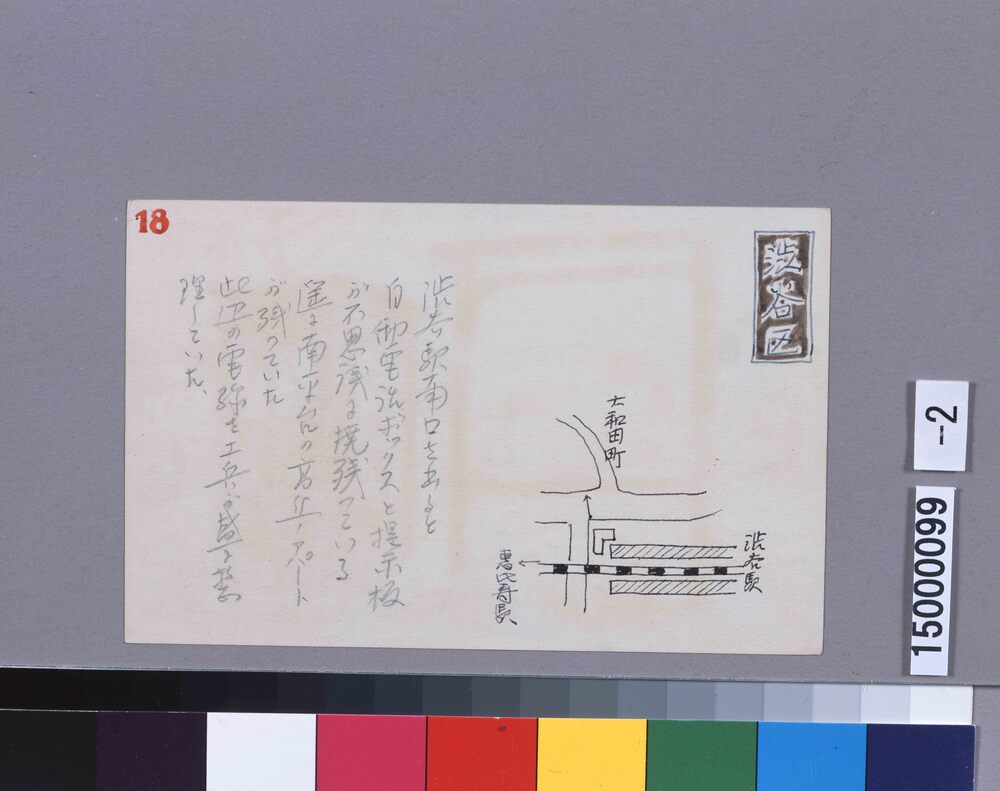 18
渋谷区
渋谷駅南口を出ると
自動電話ボックスと掲示板
が不思議に焼残っている
遥に南平台の高台ノアパート
が残っていた
此辺の電線を工兵が盛に整
理していた、
大和田町
渋谷駅
恵比寿駅
15000099
-2